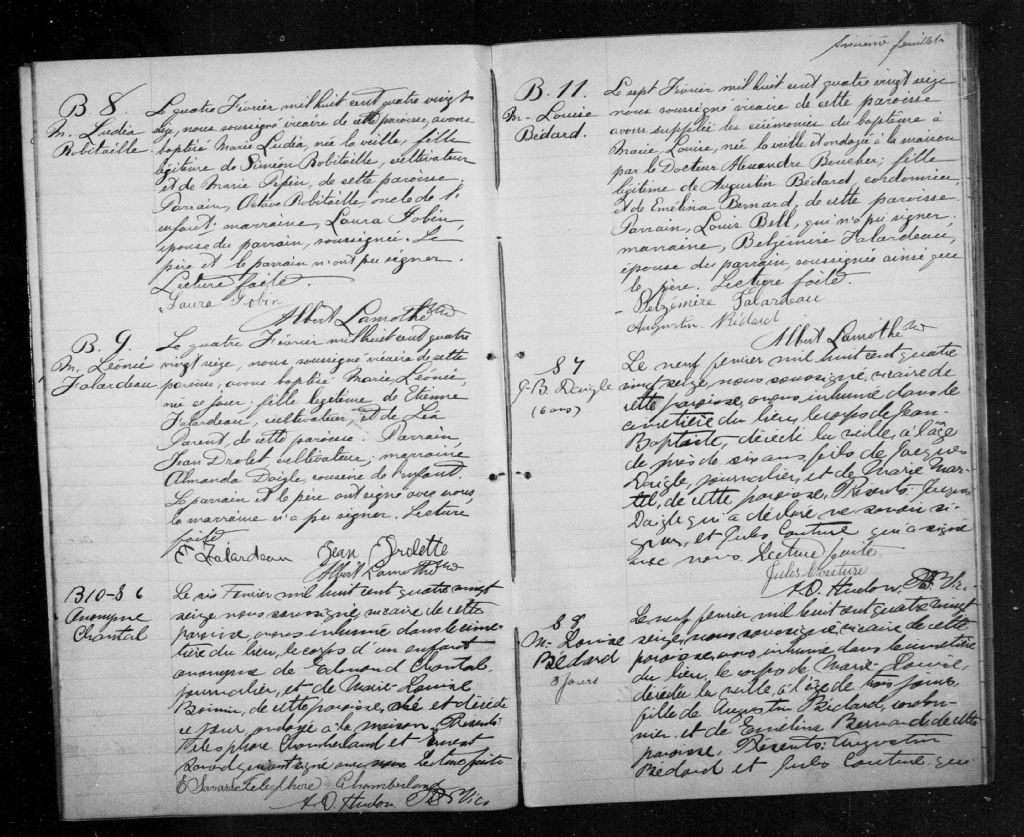 B 8.
M. Ludia
Robitaille.
Le quatre Février mil huit cent quatre vingt
seize, nous soussigné vicaire de cette paroisse, avons
baptisé Marie Ludia, née la veille, fille
légitime de Siméon Robitaille, cultivateur
et de Marie Pepin, de cette paroisse,
Parrain, Octave Robitaille, oncle de l'
enfant; marraine, Laura Jobin,
épouse du parrain, soussignée. Le
père et le parrain n'ont pu signer.
Lecture faite.
Laura Jobin
Albert Lamothe
B. 9.
M. Léonie
Falardeau
Le quatre Février mil huit cent quatre
vingt seize, nous soussigné vicaire de cette
paroisse, avons baptisé Marie Léonie,
née ce jour, fille légitime de Etienne
Falardeau, cultivateur, et de Léa
Parent, de cette paroisse. Parrain,
Jean Drolet cultivateur; marraine
Almanda Daigle, cousine de l'enfant.
Le parrain et le père ont signé avec nous,
la marraine n'a pu signer. Lecture
faite
E Falardeau Jean Drolette
Albert Lamothe
B10-S 6
Anonyme
Chantal
Le six Fevrier mil huit cent quatre vingt
seize nous soussigné vicaire de cette
paroisse, avons inhumé dans le cime-
tière du lieu, le corps d'un enfant
anonyme de Edmond Chantal
journalier, et de Marie-Louise
de cette paroisse, né et décédé
ce jour ondoyé à la maison. Présents:
Télesphore Chamberland et Ernest
Savard qui ont signé avec nous Lecture faite
E Savard Telesphore Chamberland
A. O. Hudon Ptre Vic
B. 11.
M. Louise
Bédard.
Le sept Février mil huit cent quatre vingt seize
nous soussigné vicaire de cette paroisse
avons suppléé les cérémonies du baptême à
Marie Louise, née la veille et ondoyée à la maison
par le Docteur Alexandre Boucher; fille
légitime de Augustin Bédard, cordonnier,
et de Emélina Bernard, de cette paroisse.
Parrain, Louis Bell, qui n'a pu signer.
marraine, Belzémire Falardeau,
épouse du parrain, soussignée ainsi que
le père. Lecture faite.
Belzémire Falardeau
Augustin Bédard
Albert Lamothe
S 7
J-B. Daigle
(6 ans)
Le neuf fevrier mil huit cent quatre
vingt seize, nous soussigné, vicaire de
cette paroisse, avons inhumé dans le
cimetière du lieu, le corps de Jean-
Baptiste, décédé la veille, à l'âge
de près de six ans, fils de Jacques
Daigle, journalier, et de Marie Mar-
tel, de cette paroisse, Présents: Jacques
Daigle qui a déclaré ne savoir si-
gner, et Jules Couture qui a signé
avec nous. Lecture faite
Jules Couture
A. O. Hudon, Ptre Vic.
S 8
M- Louise
Bédard
3 jours
Le neuf fevrier mil huit cent quatre vingt
seize, nous soussigné, vicaire de cette
paroisse, avons inhumé dans le cimetière
du lieu, le corps de Marie-Louise,
décédée la veille, à l'âge de trois jours,
fille de Augustin Bédard, cordon-
nier, et de Emélina Bernard, de cette
paroisse. Présents: Augustin
Bédard et Jules Couture qui